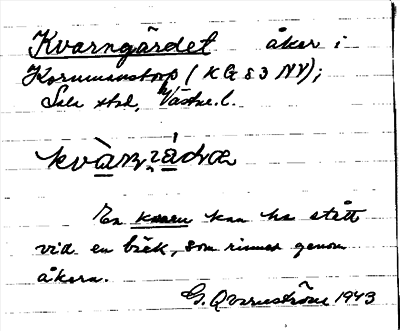 Kvarngärdet åker i
Kornmanstorp (KG 53 NV);
Sala stad, Västm. l.
kvà̱ɳɟá̱dɶ
En kvarn kan ha stått
vid en bäck, som rinner genom
åkern.
G. Qvarnström 1943